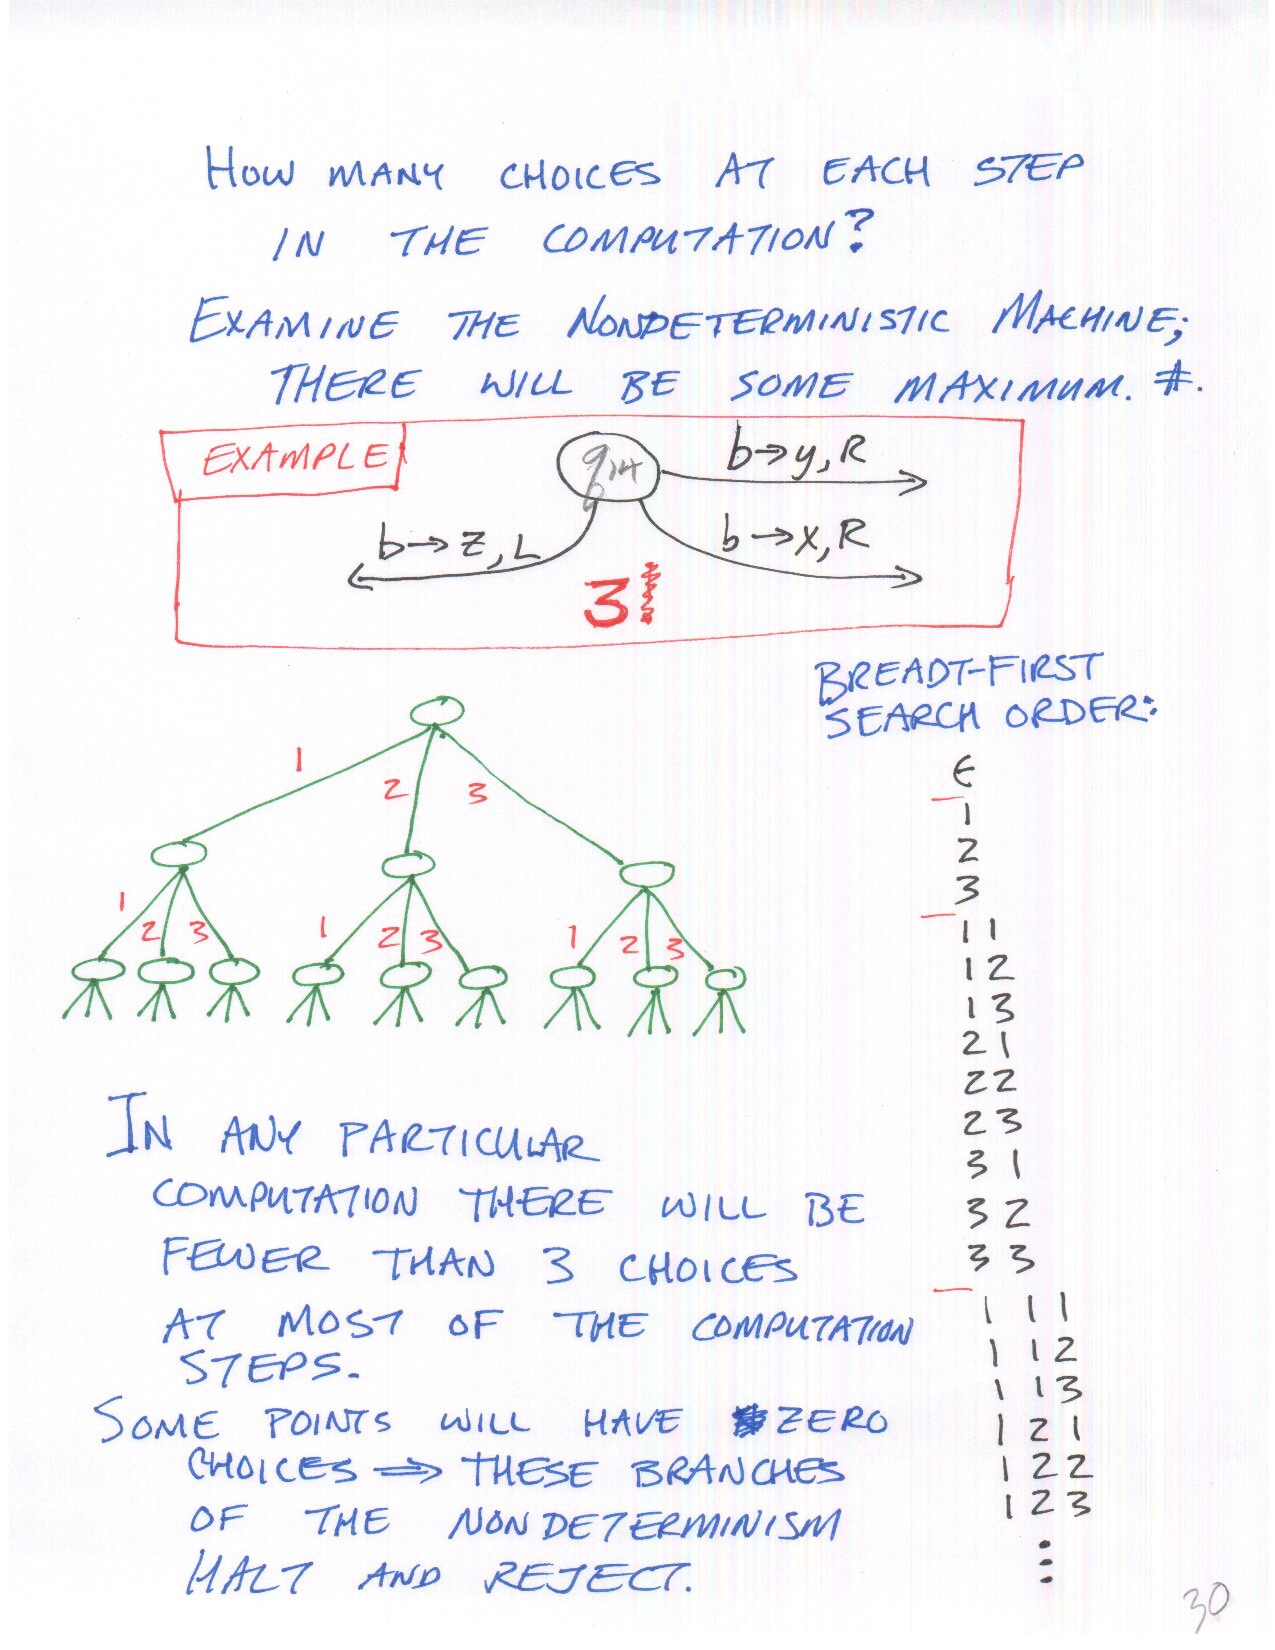 HOW MANY CHOICES AT EACH STEP
IN THE COMPUTATION?
EXAMINE THE NONDETERMINISTIC MACHINE;
THERE WILL BE SOME MAXIMUM. #.
EXAMPLE
b→y, R
b→z, L
b→x, R
3
BREADT-FIRST
SEARCH ORDER:
1
2
3
1
2
3
1
2
3
1
2
3
ϵ
1
2
3
11
12
13
21
22
23
31
32
33
111
112
113
121
122
123
⋮
IN ANY PARTICULAR
COMPUTATION THERE WILL BE
FEWER THAN 3 CHOICES
AT MOST OF THE COMPUTATION
STEPS.
SOME POINTS WILL HAVE ZERO
CHOICES ⇒ THESE BRANCHES
OF THE NONDETERMINISM
HALT AND REJECT.
30